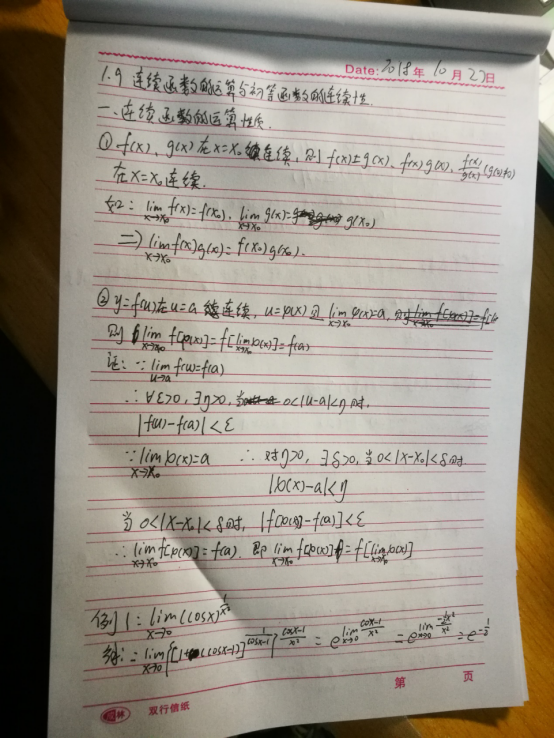 Date: 2018年 10月 27日
1.9 连续函数的运算与初等函数的连续性.
一、连续函数的运算性质.
① f(x)、g(x) 在 x=x₀ 连续, 则 f(x)±g(x)、f(x)g(x)、f(x)/g(x) (g(x)≠0)
在 x=x₀ 连续.
lim_{x→x₀} f(x)=f(x₀), lim_{x→x₀} g(x)= g(x₀)
⇒ lim_{x→x₀} f(x)g(x)=f(x₀)g(x₀).
② y=f(u)在 u=a 连续, u=φ(x) 且 lim_{x→x₀} φ(x)=a,
则 lim_{x→x₀} f[φ(x)]=f[lim_{x→x₀} φ(x)]=f(a)
证: ∵ lim_{u→a} f(u)=f(a)
∴ ∀ε>0, ∃η>0, 当 0<|u-a|<η 时,
|f(u)-f(a)|<ε
∵ lim_{x→x₀} φ(x)=a ∴ 对η>0, ∃δ>0, 当 0<|x-x₀|<δ 时.
|φ(x)-a|<η
当 0<|x-x₀|<δ 时, |f[φ(x)]-f(a)|<ε
∴ lim_{x→x₀} f[φ(x)]=f(a). 即 lim_{x→x₀} f[φ(x)]=f[lim_{x→x₀} φ(x)]
例1: lim_{x→0} (cosx)^{1/x²}
解: = lim_{x→0} {[1+(cosx-1)]^{1/(cosx-1)}}^{(cosx-1)/x²} = e^{lim_{x→0} (cosx-1)/x²} = e^{lim_{x→0} (-½x²)/x²} = e^{-1/2}
第 页
双行信纸